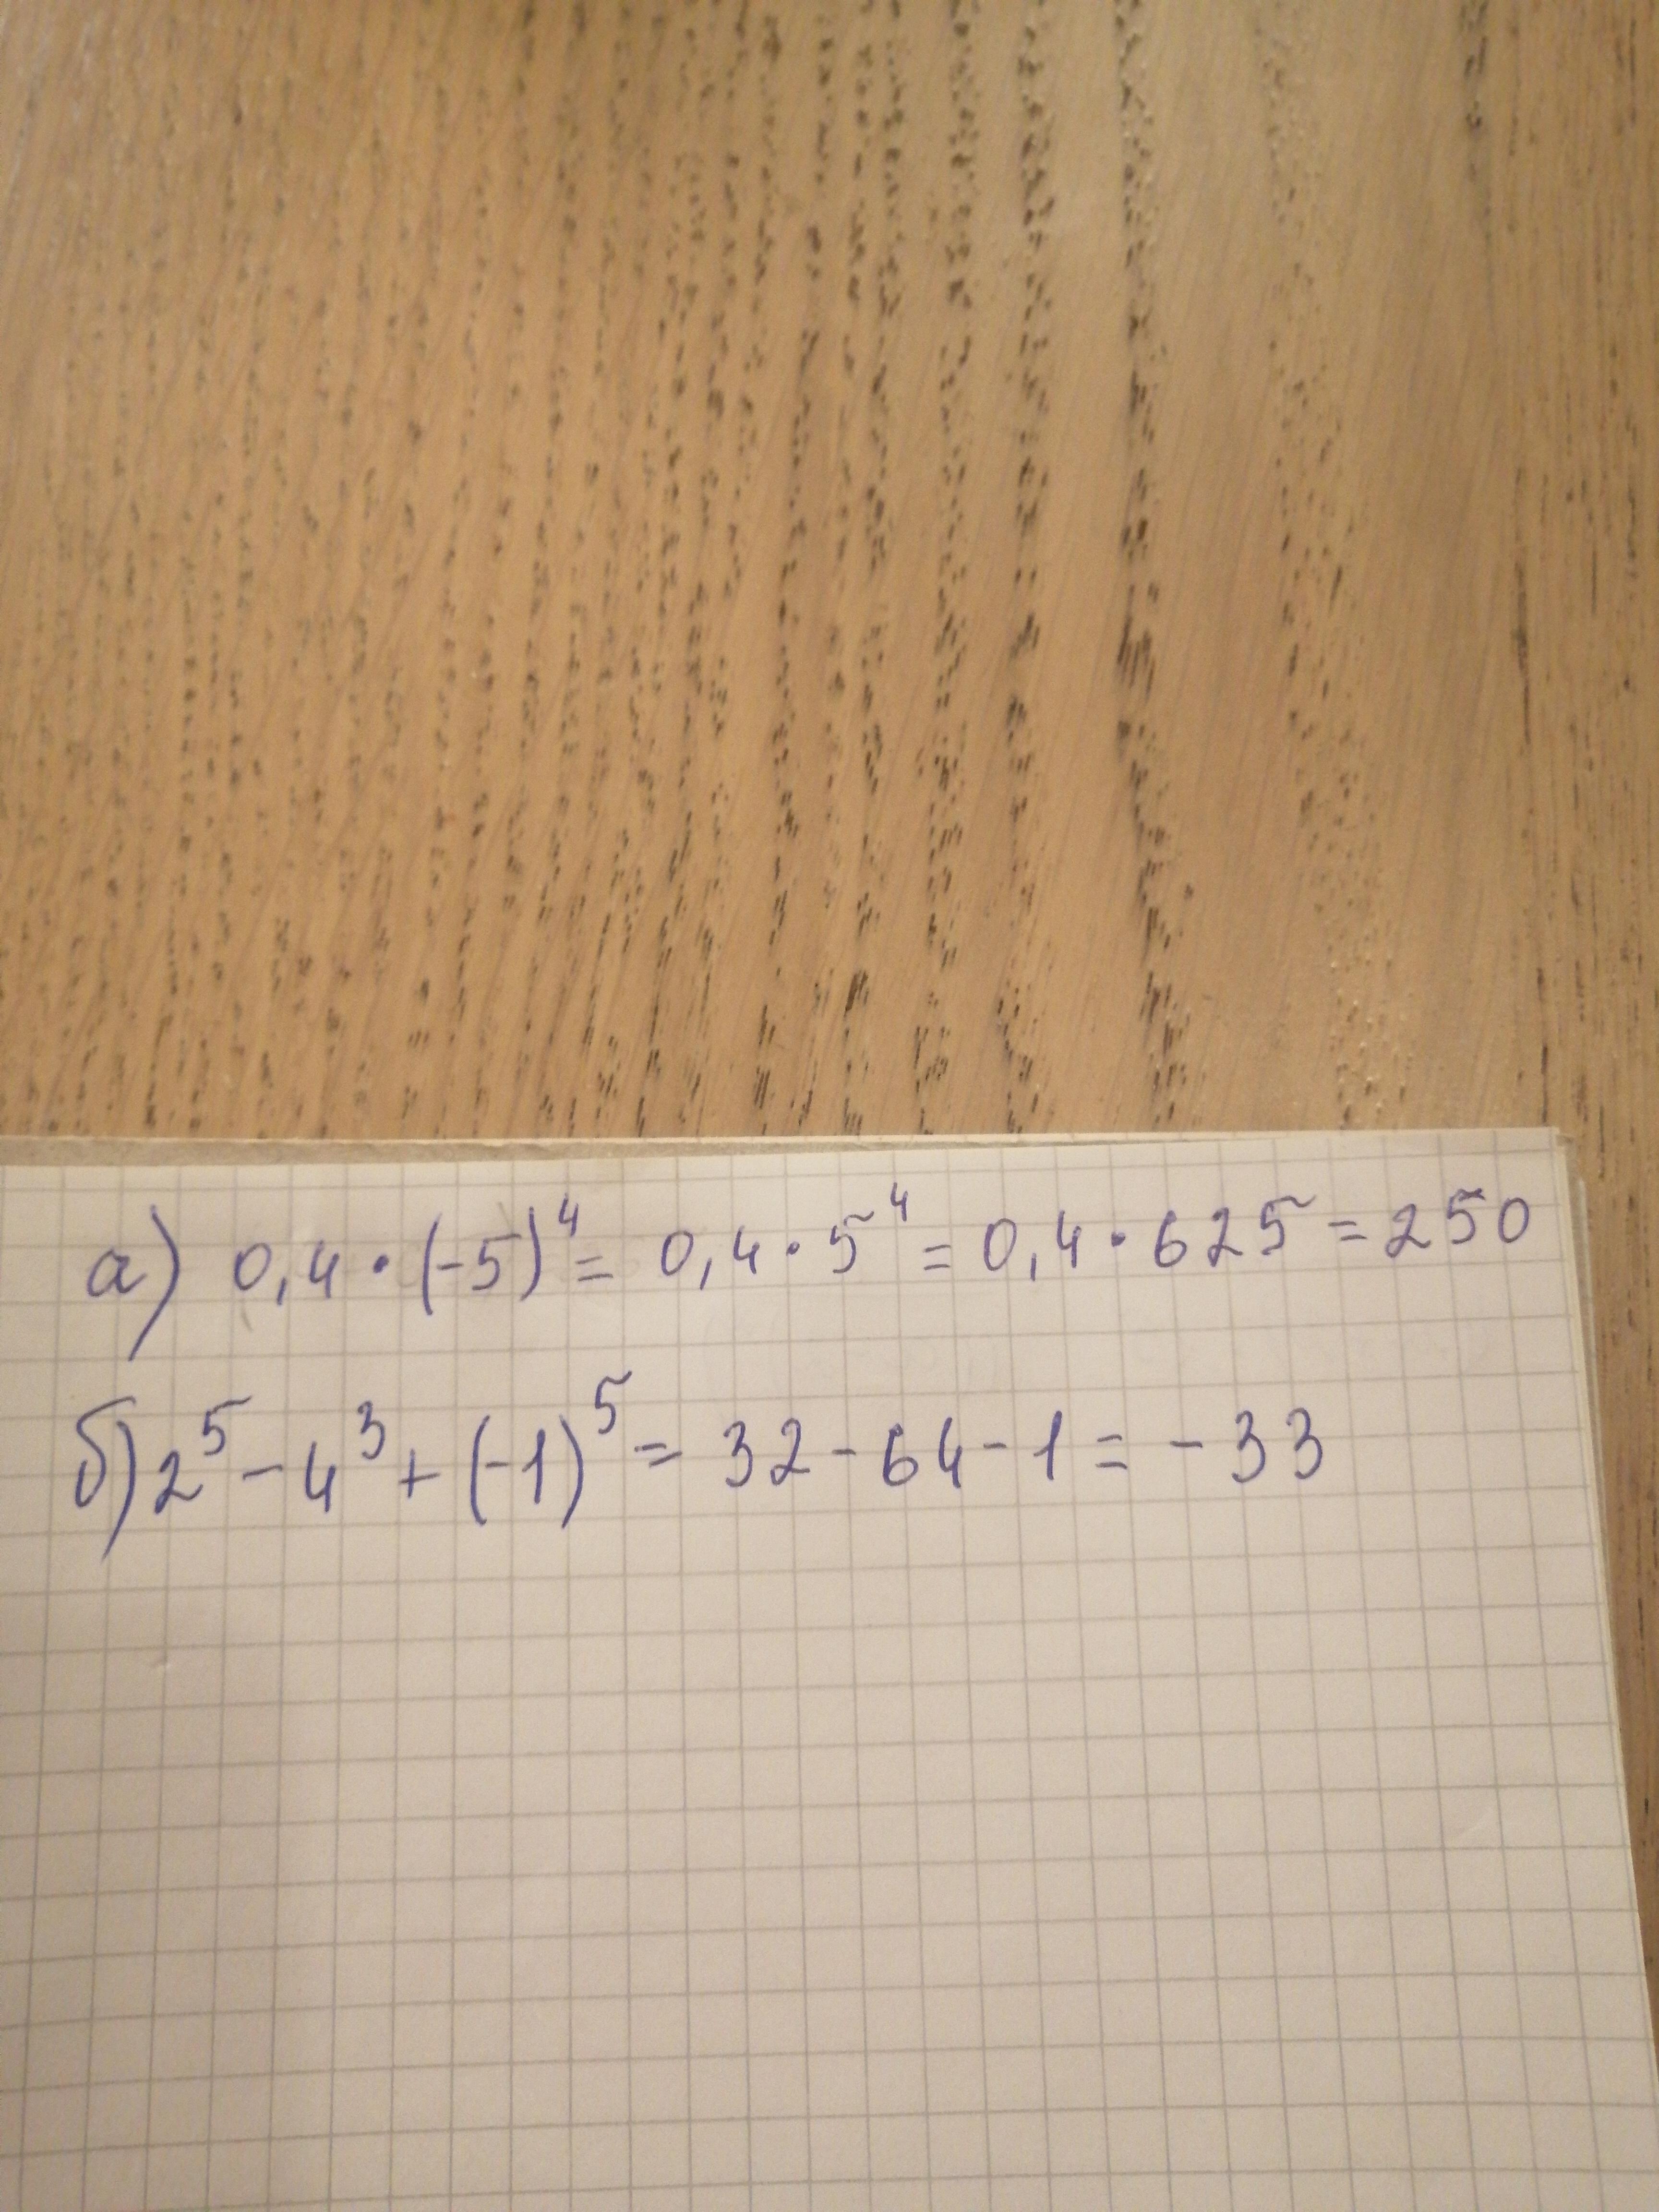 а) 0,4 · (-5)⁴ = 0,4 · 5⁴ = 0,4 · 625 = 250
б) 2⁵ - 4³ + (-1)⁵ = 32 - 64 - 1 = - 33